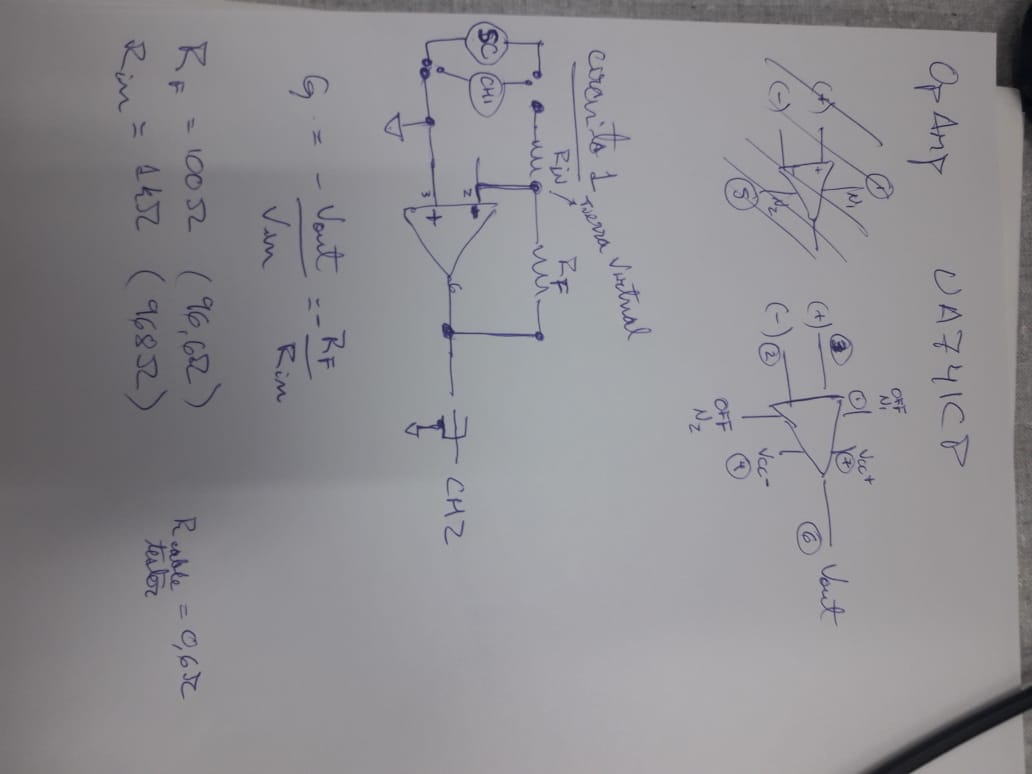 OpAmp UA741CP
(+)
(-)
+
N1
N2
1
5
(+) 3
(-) 2
1 OFF N1
7 Vcc+
OFF N2
Vcc- 4
6 Vout
circuito 1
Tierra Virtual
Rin
RF
SC
CH1
2
3
+
6
CH2
G = - Vout / Vin = - RF / Rin
RF = 100Ω (96,6Ω)
Rin = 1kΩ (968Ω)
Rcable tester = 0,6Ω